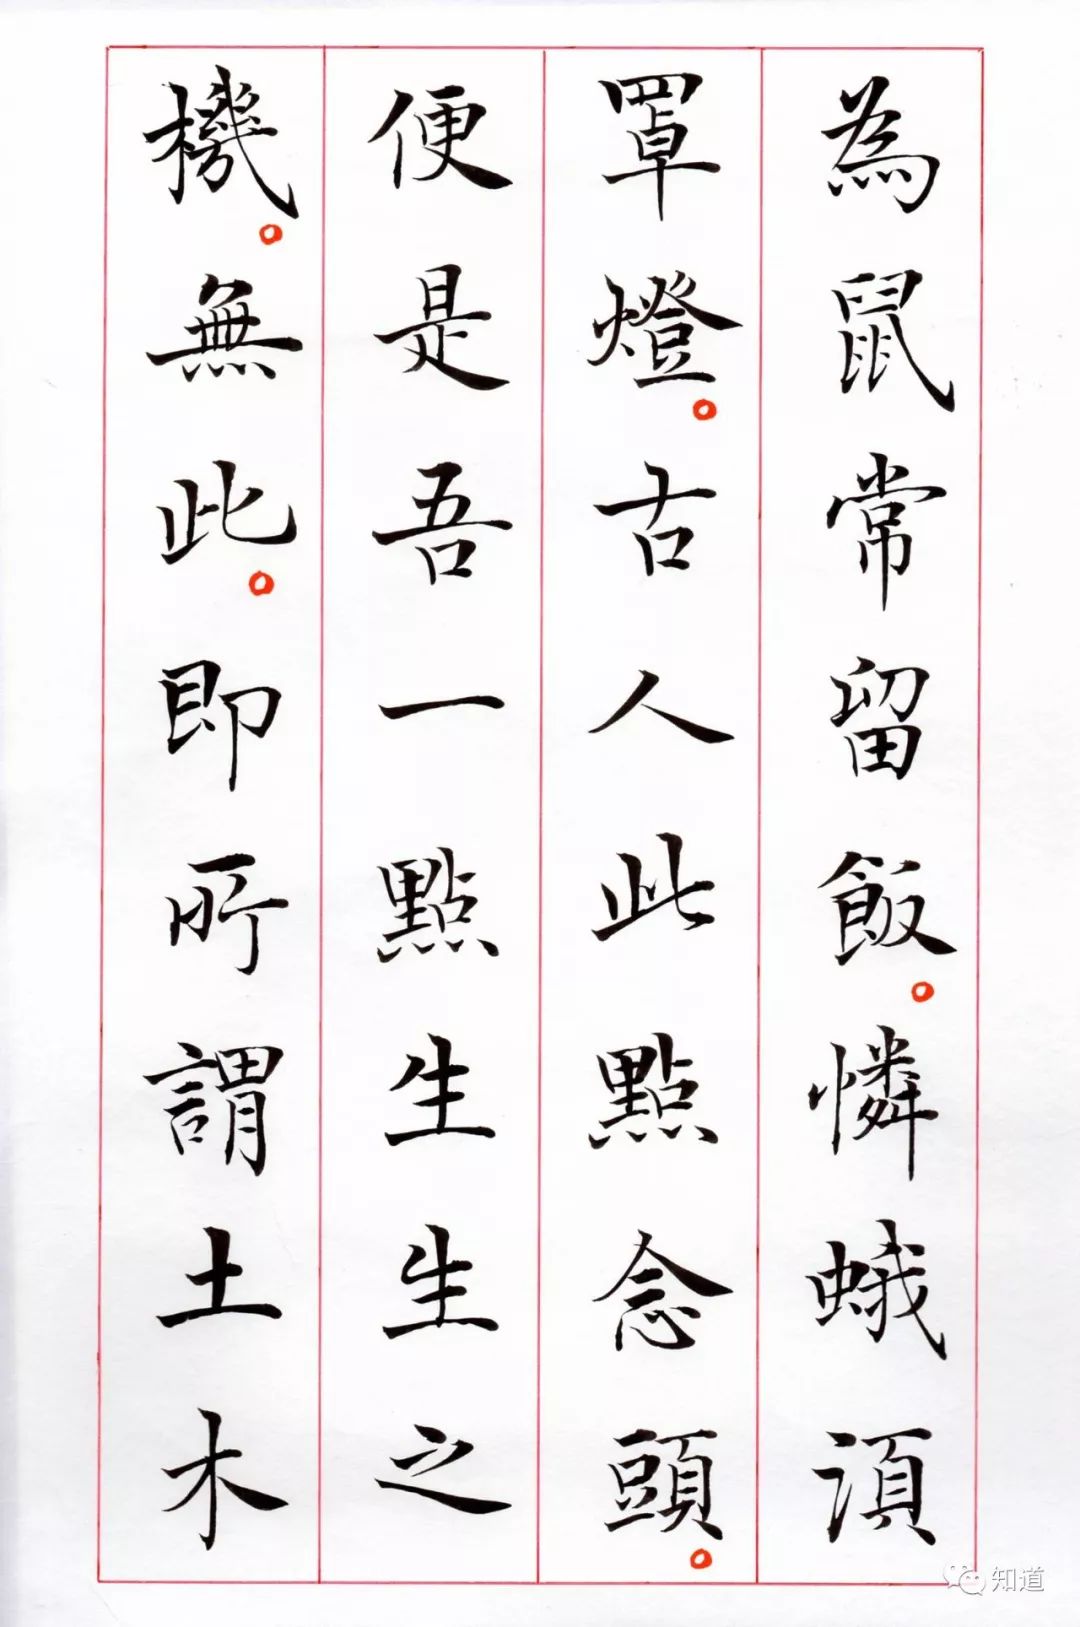 為鼠常留飯。憐蛾須
罩燈。古人此點念頭。
便是吾一點生生之
機。無此。即所謂土木
知道